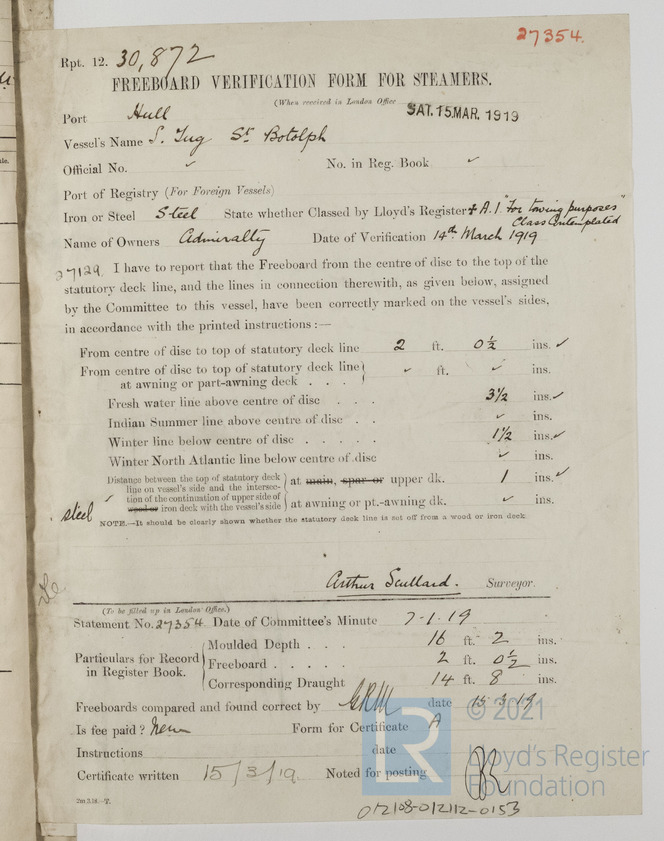 27354.
Rpt. 12. 30,872
FREEBOARD VERIFICATION FORM FOR STEAMERS.
(When received in London Office SAT. 15 MAR. 1919
Port Hull
Vessel's Name S. Tug St Botolph
Official No. ✓ No. in Reg. Book ✓
Port of Registry (For Foreign Vessels)
Iron or Steel Steel State whether Classed by Lloyd's Register + A.1 "For towing purposes"
Class Contemplated
Name of Owners Admiralty Date of Verification 14th March 1919
27129. I have to report that the Freeboard from the centre of disc to the top of the
statutory deck line, and the lines in connection therewith, as given below, assigned
by the Committee to this vessel, have been correctly marked on the vessel's sides,
in accordance with the printed instructions :—
From centre of disc to top of statutory deck line 2 ft. 0½ ins. ✓
From centre of disc to top of statutory deck line
at awning or part-awning deck . . . ✓ ft. ✓ ins.
Fresh water line above centre of disc . . . 3½ ins. ✓
Indian Summer line above centre of disc . . ✓ ins.
Winter line below centre of disc . . . . 1½ ins. ✓
Winter North Atlantic line below centre of disc ✓ ins.
Distance between the top of statutory deck
line on vessel's side and the intersec-
tion of the continuation of upper side of
wood or iron deck with the vessel's side
at main, spar or upper dk. 1 ins. ✓
at awning or pt.-awning dk. ✓ ins.
steel ✓
NOTE.—It should be clearly shown whether the statutory deck line is set off from a wood or iron deck
Arthur Scullard. Surveyor.
(To be filled up in London Office.)
Statement No. 27354. Date of Committee's Minute 7-1-19
Particulars for Record
in Register Book.
Moulded Depth . . . 16 ft. 2 ins.
Freeboard . . . . . 2 ft. 0½ ins.
Corresponding Draught 14 ft. 8 ins.
Freeboards compared and found correct by date 15 3 19
Is fee paid? Form for Certificate A
Instructions date
Certificate written 15/3/19. Noted for posting
2m.3.18.—T.
012108-012112-0153
© 2021
Lloyd's Register
Foundation